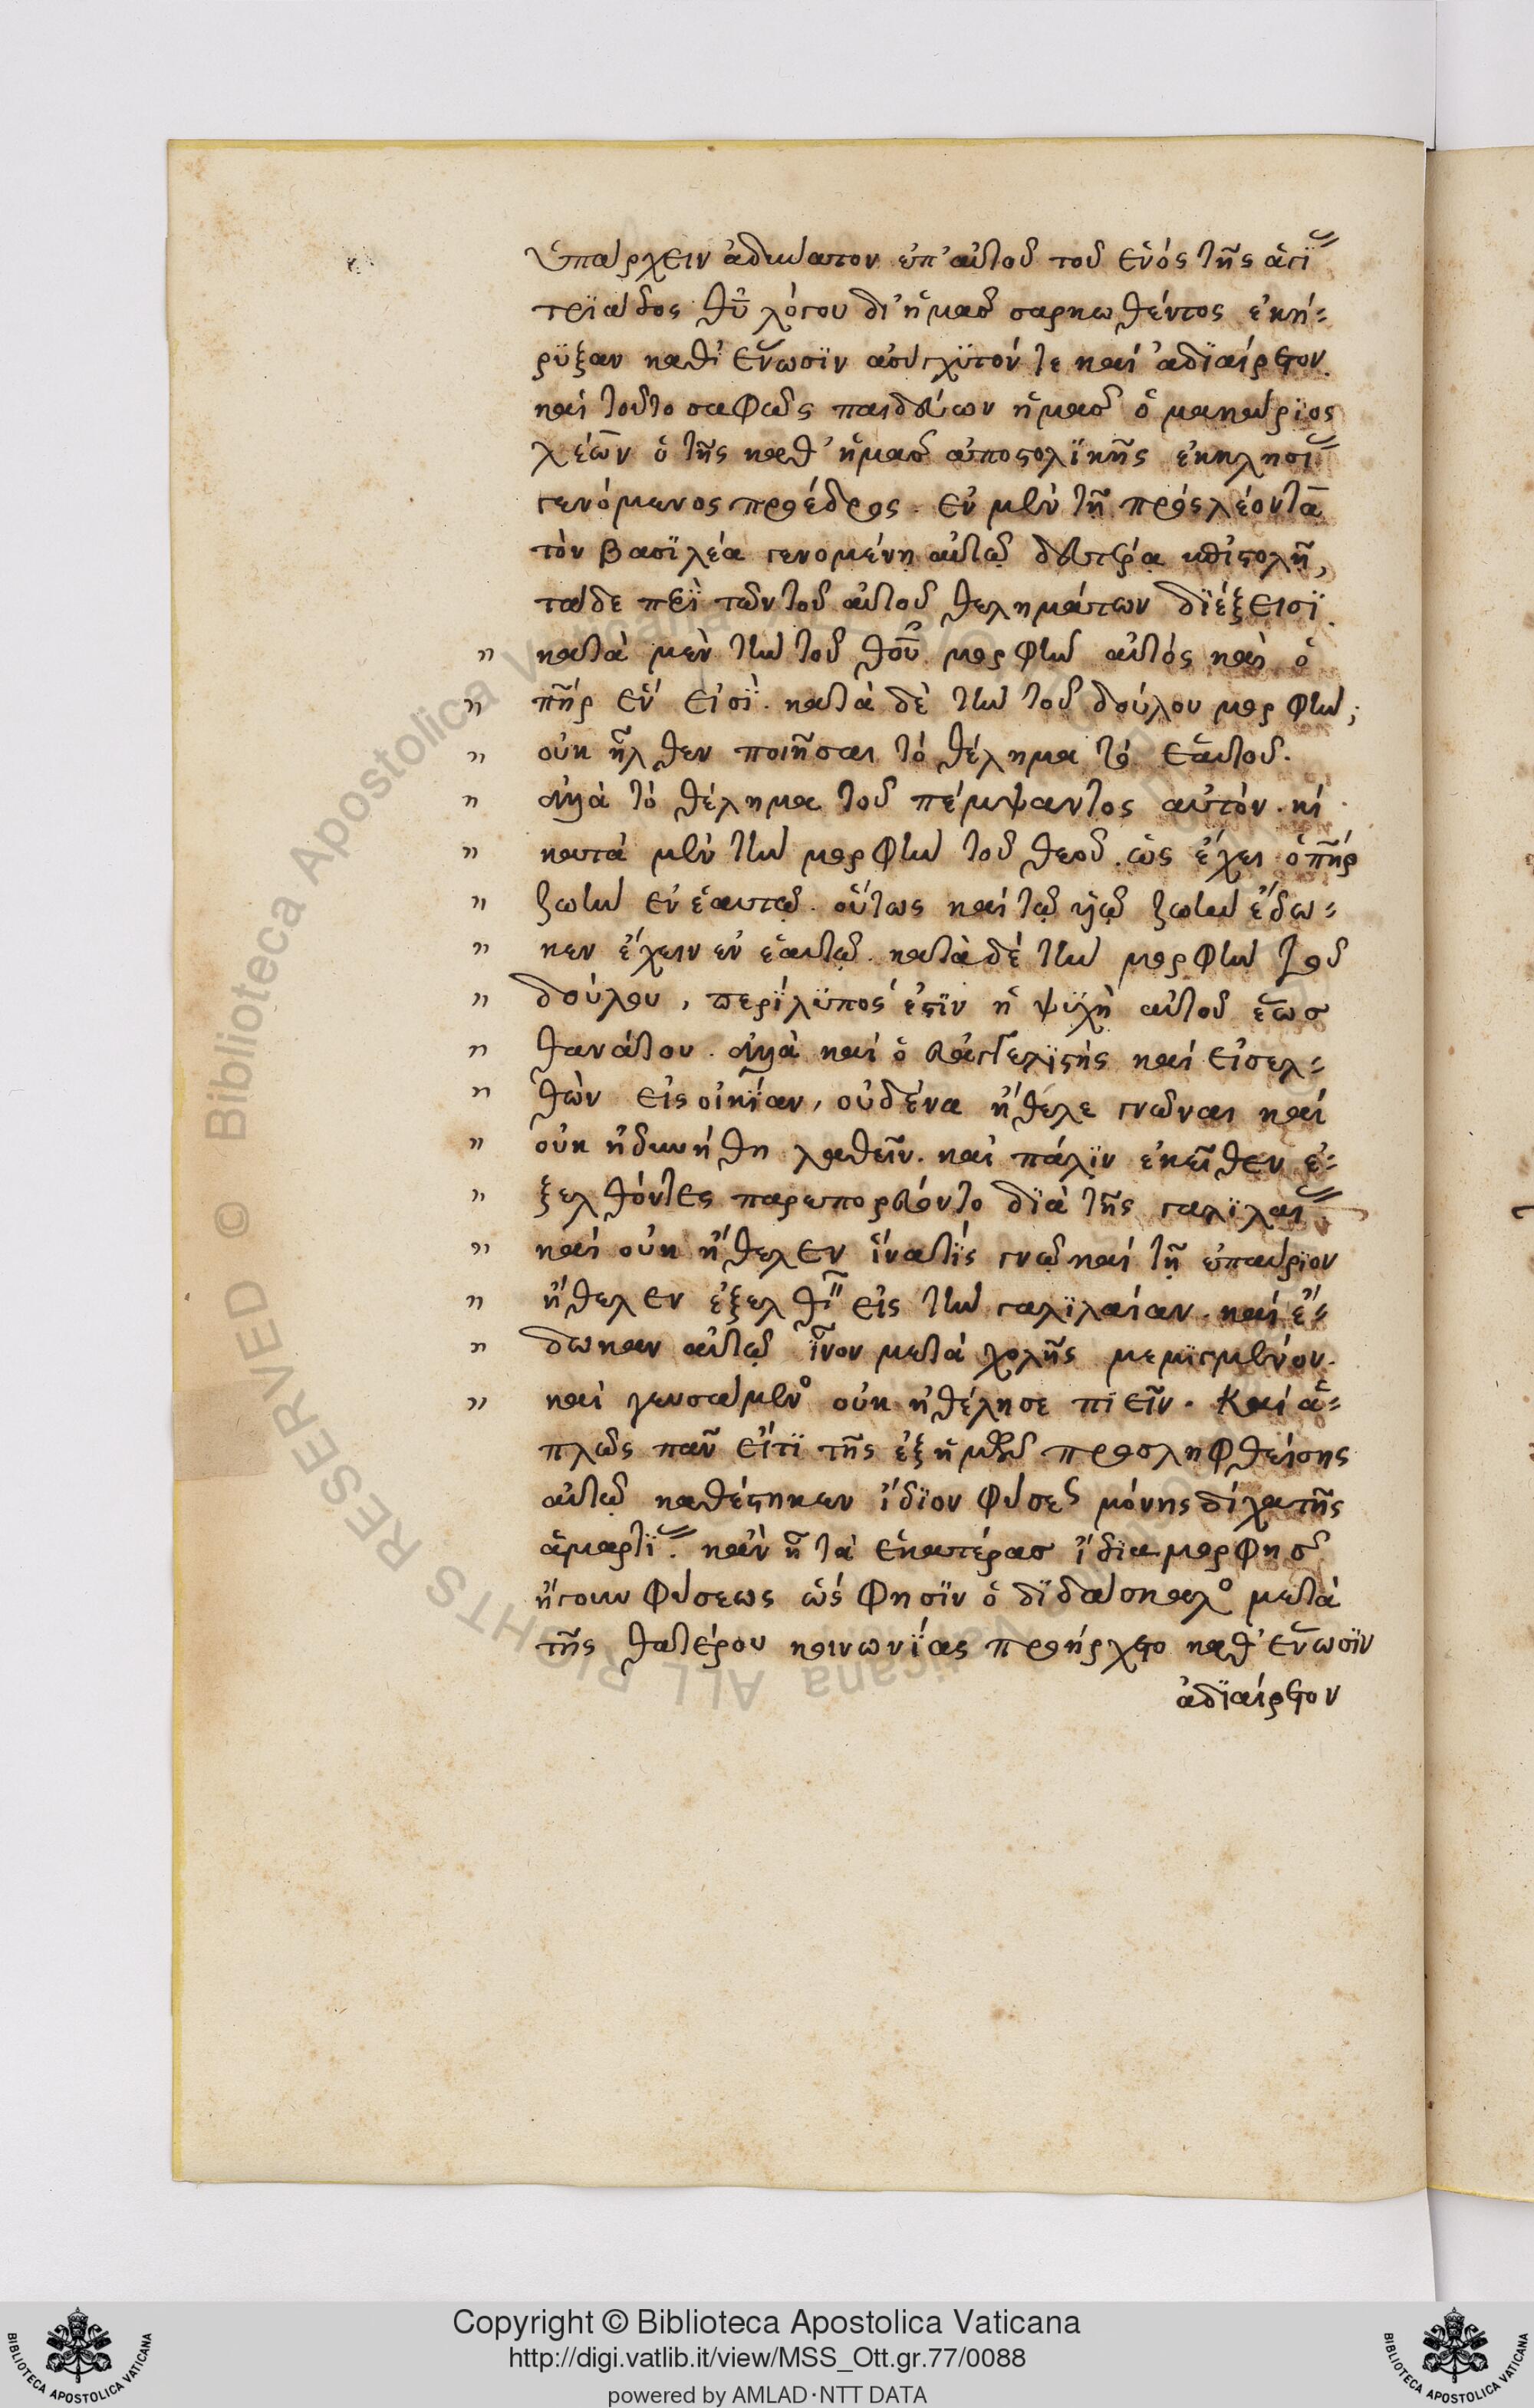 ὑπάρχειν ἀδύνατον ὑπ' αὐτοῦ τοῦ ἑνός τῆς ἁγί
τριάδος θῦ λόγου δι' ἡμᾶσ σαρκωθέντος ἐκή-
ρϋξαν καθ' ἕνωσϊν ἀσύγχϋτόν τε καί ἀδϊαίρετον.
καί τοῦτο σαφῶς παιδεύων ἡμᾶσ ὁ μακάρϊος
λέων ὁ τῆς καθ' ἡμᾶσ ἀποστολϊκῆς ἐκκλησι
γενόμενος πρόεδρος. ἐν μὲν τῇ πρός λέοντα
τὸν βασϊλέα γενομένῃ αὐτῷ δευτέρᾳ ἐπιστολῇ,
τάδε περὶ τῶν τοῦ αὐτοῦ θελημάτων δϊέξεισϊ.
" κατὰ μὲν τὴν τοῦ θοῦ μορφὴν αὐτός καὶ ὁ
" πῆρ ἕν εἰσϊ. κατὰ δὲ τὴν τοῦ δούλου μορφὴν,
" οὐκ ἦλθεν ποιῆσαι τό θέλημα τό ἑαυτοῦ.
" ἀλλὰ τὸ θέλημα τοῦ πέμψαντος αὐτόν. κί
" κατὰ μὲν τὴν μορφὴν τοῦ θεοῦ. ὡς ἔχει ὁ πῆρ
" ζωὴν ἐν ἑαυτῷ. οὕτως καί τῷ υἱῷ ζωὴν ἔδω-
" κεν ἔχειν ἐν ἑαυτῷ. κατὰ δέ τὴν μορφὴν τοῦ
" δούλου, περϊλϋπός ἐστϊν ἡ ψϋχὴ αὐτοῦ ἕωσ
" θανάτου. ἀλλὰ καί ὁ εὐαγγελϊστής καί εἰσελ-
" θὼν εἰς οἰκϊαν, οὐδένα ἤθελε γνῶναι καί
" οὐκ ἠδυνήθη λαθεῖν. καί πάλϊν ἐκεῖθεν ἐ-
" ξελθόντες παρεπορεύοντο δϊὰ τῆς γαλϊλαι
" καί οὐκ ἤθελεν ἵνα τϊς γνῷ καί τῇ ἐπαύρϊον
" ἤθελεν ἐξελθῖν εἰς τὴν γαλϊλαίαν. καί ἔ-
" δωκαν αὐτῷ ἶνον μετά χολῆς μεμϊγμένον.
" καί γευσάμενο οὐκ ἠθέλησε πϊεῖν. Καί ἁ-
πλῶς πᾶν εἴτϊ τῆς ἐξ ἡμῶν προσληφθείσης
αὐτῷ καθέστηκεν ἴδϊον φύσεως μόνης δίχα τῆς
ἁμαρτϊ. κἂν ᾖ τὰ ἑκατέρασ ἴδϊα μορφησ
ἤγουν φύσεως ὥς φησϊν ὁ δϊδάσκαλο μετὰ
τῆς θατέρου κοινωνϊας προήρχετο καθ' ἕνωσϊν
ἀδϊαίρετον
Copyright © Biblioteca Apostolica Vaticana
http://digi.vatlib.it/view/MSS_Ott.gr.77/0088
powered by AMLAD·NTT DATA
BIBLIOTECA APOSTOLICA VATICANA
BIBLIOTECA APOSTOLICA VATICANA